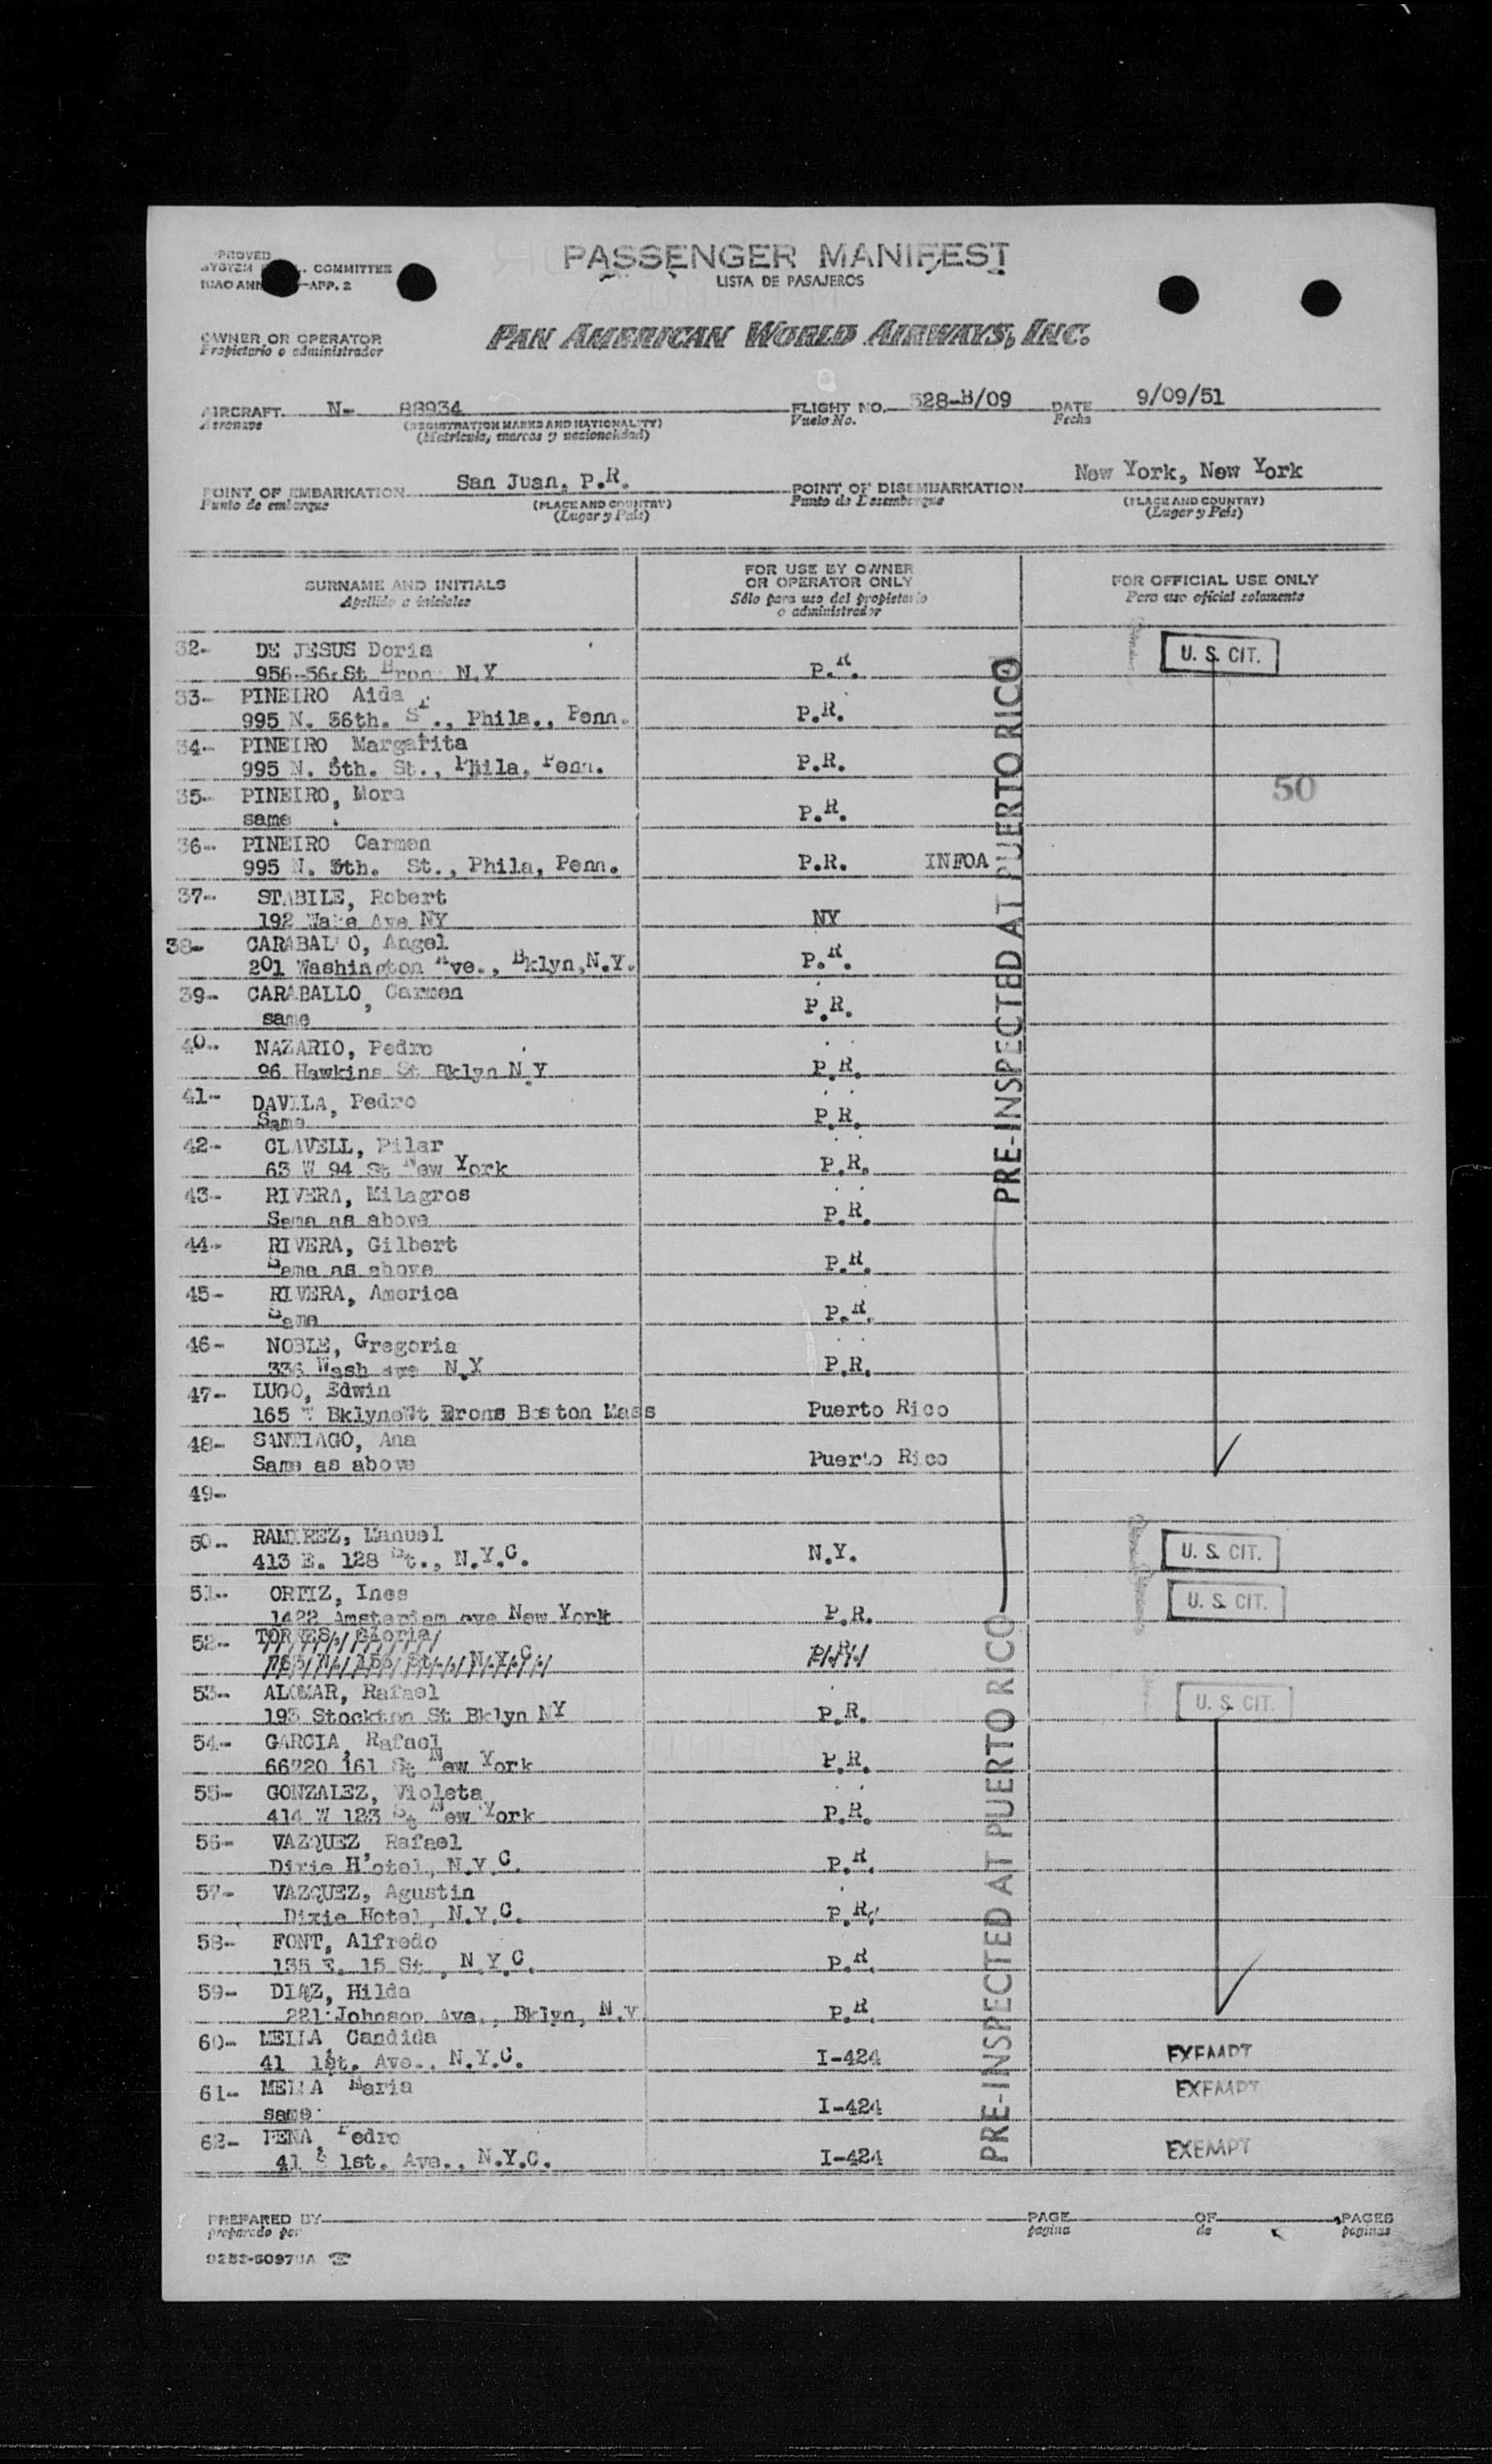 PASSENGER MANIFEST
LISTA DE PASAJEROS
COMMITTEE
APP. 2
OWNER OR OPERATOR
Propietario o administrador
PAN AMERICAN WORLD AIRWAYS, INC.
AIRCRAFT N- 88934
Aeronave
(REGISTRATION MARKS AND NATIONALITY)
(Matricula, marcas y nacionalidad)
FLIGHT NO. 528-B/09
Vuelo No.
DATE 9/09/51
Fecha
POINT OF EMBARKATION San Juan, P.R.
Punto de embarque
(PLACE AND COUNTRY)
(Lugar y País)
POINT OF DISEMBARKATION New York, New York
Punto de Desembarque
(PLACE AND COUNTRY)
(Lugar y País)
SURNAME AND INITIALS
Apellido e iniciales
FOR USE BY OWNER
OR OPERATOR ONLY
Sólo para uso del propietario
o administrador
FOR OFFICIAL USE ONLY
Para uso oficial solamente
32- DE JESUS Doria U. S. CIT.
956-56 St Bron N.Y P.R.
33- PINEIRO Aida
995 N. 56th. St., Phila., Penn. P.R.
34- PINEIRO Margarita
995 N. 5th. St., Phila, Penn. P.R.
35- PINEIRO, Mora 50
same P.R.
36- PINEIRO Carmen
995 N. 5th. St., Phila, Penn. P.R. INFOA
37- STABILE, Robert
192 Ave NY NY
38- CARABAL O, Angel
201 Washington Ave., Bklyn,N.Y. P.R.
39- CARABALLO, Carmen
same P.R.
40- NAZARIO, Pedro
96 Hawkins St Bklyn N Y P.R.
41- DAVILA, Pedro
Same P.R.
42- CLAVELL, Pilar
63 W 94 St New York P.R.
43- RIVERA, Milagros
Same as above P.R.
44- RIVERA, Gilbert
Same as above P.R.
45- RIVERA, America
Same P.R.
46- NOBLE, Gregoria
336 Wash ave N.Y P.R.
47- LUGO, Edwin
165 Boston Mass Puerto Rico
48- SANTIAGO, Ana
Same as above Puerto Rico
49-
50- RAMIREZ, Manuel U. S. CIT.
413 E. 128 St., N.Y.C. N.Y.
51- ORTIZ, Ines U. S. CIT.
1422 Amsterdam ave New York P.R.
52- TORRES, Gloria
N.Y.C P.R.
53- ALOMAR, Rafael U. S. CIT.
193 Stockton St Bklyn NY P.R.
54- GARCIA, Rafael
66720 161 St New York P.R.
55- GONZALEZ, Violeta
414 W 123 St New York P.R.
56- VAZQUEZ Rafael
Dixie H'otel, N.Y.C. P.R.
57- VAZQUEZ, Agustin
Dixie Hotel, N.Y.C. P.R.
58- FONT, Alfredo
135 E. 15 St., N.Y.C. P.R.
59- DIAZ, Hilda
221 Johnson Ave., Bklyn, N.Y P.R.
60- MELLA, Candida EXEMPT
41 1st. Ave., N.Y.C. I-424
61- MELLA Maria EXEMPT
same I-424
62- PENA, Pedro EXEMPT
41 1st. Ave., N.Y.C. I-424
PRE-INSPECTED AT PUERTO RICO
PRE-INSPECTED AT PUERTO RICO
PREPARED BY
preparado por
PAGE OF PAGES
página de páginas